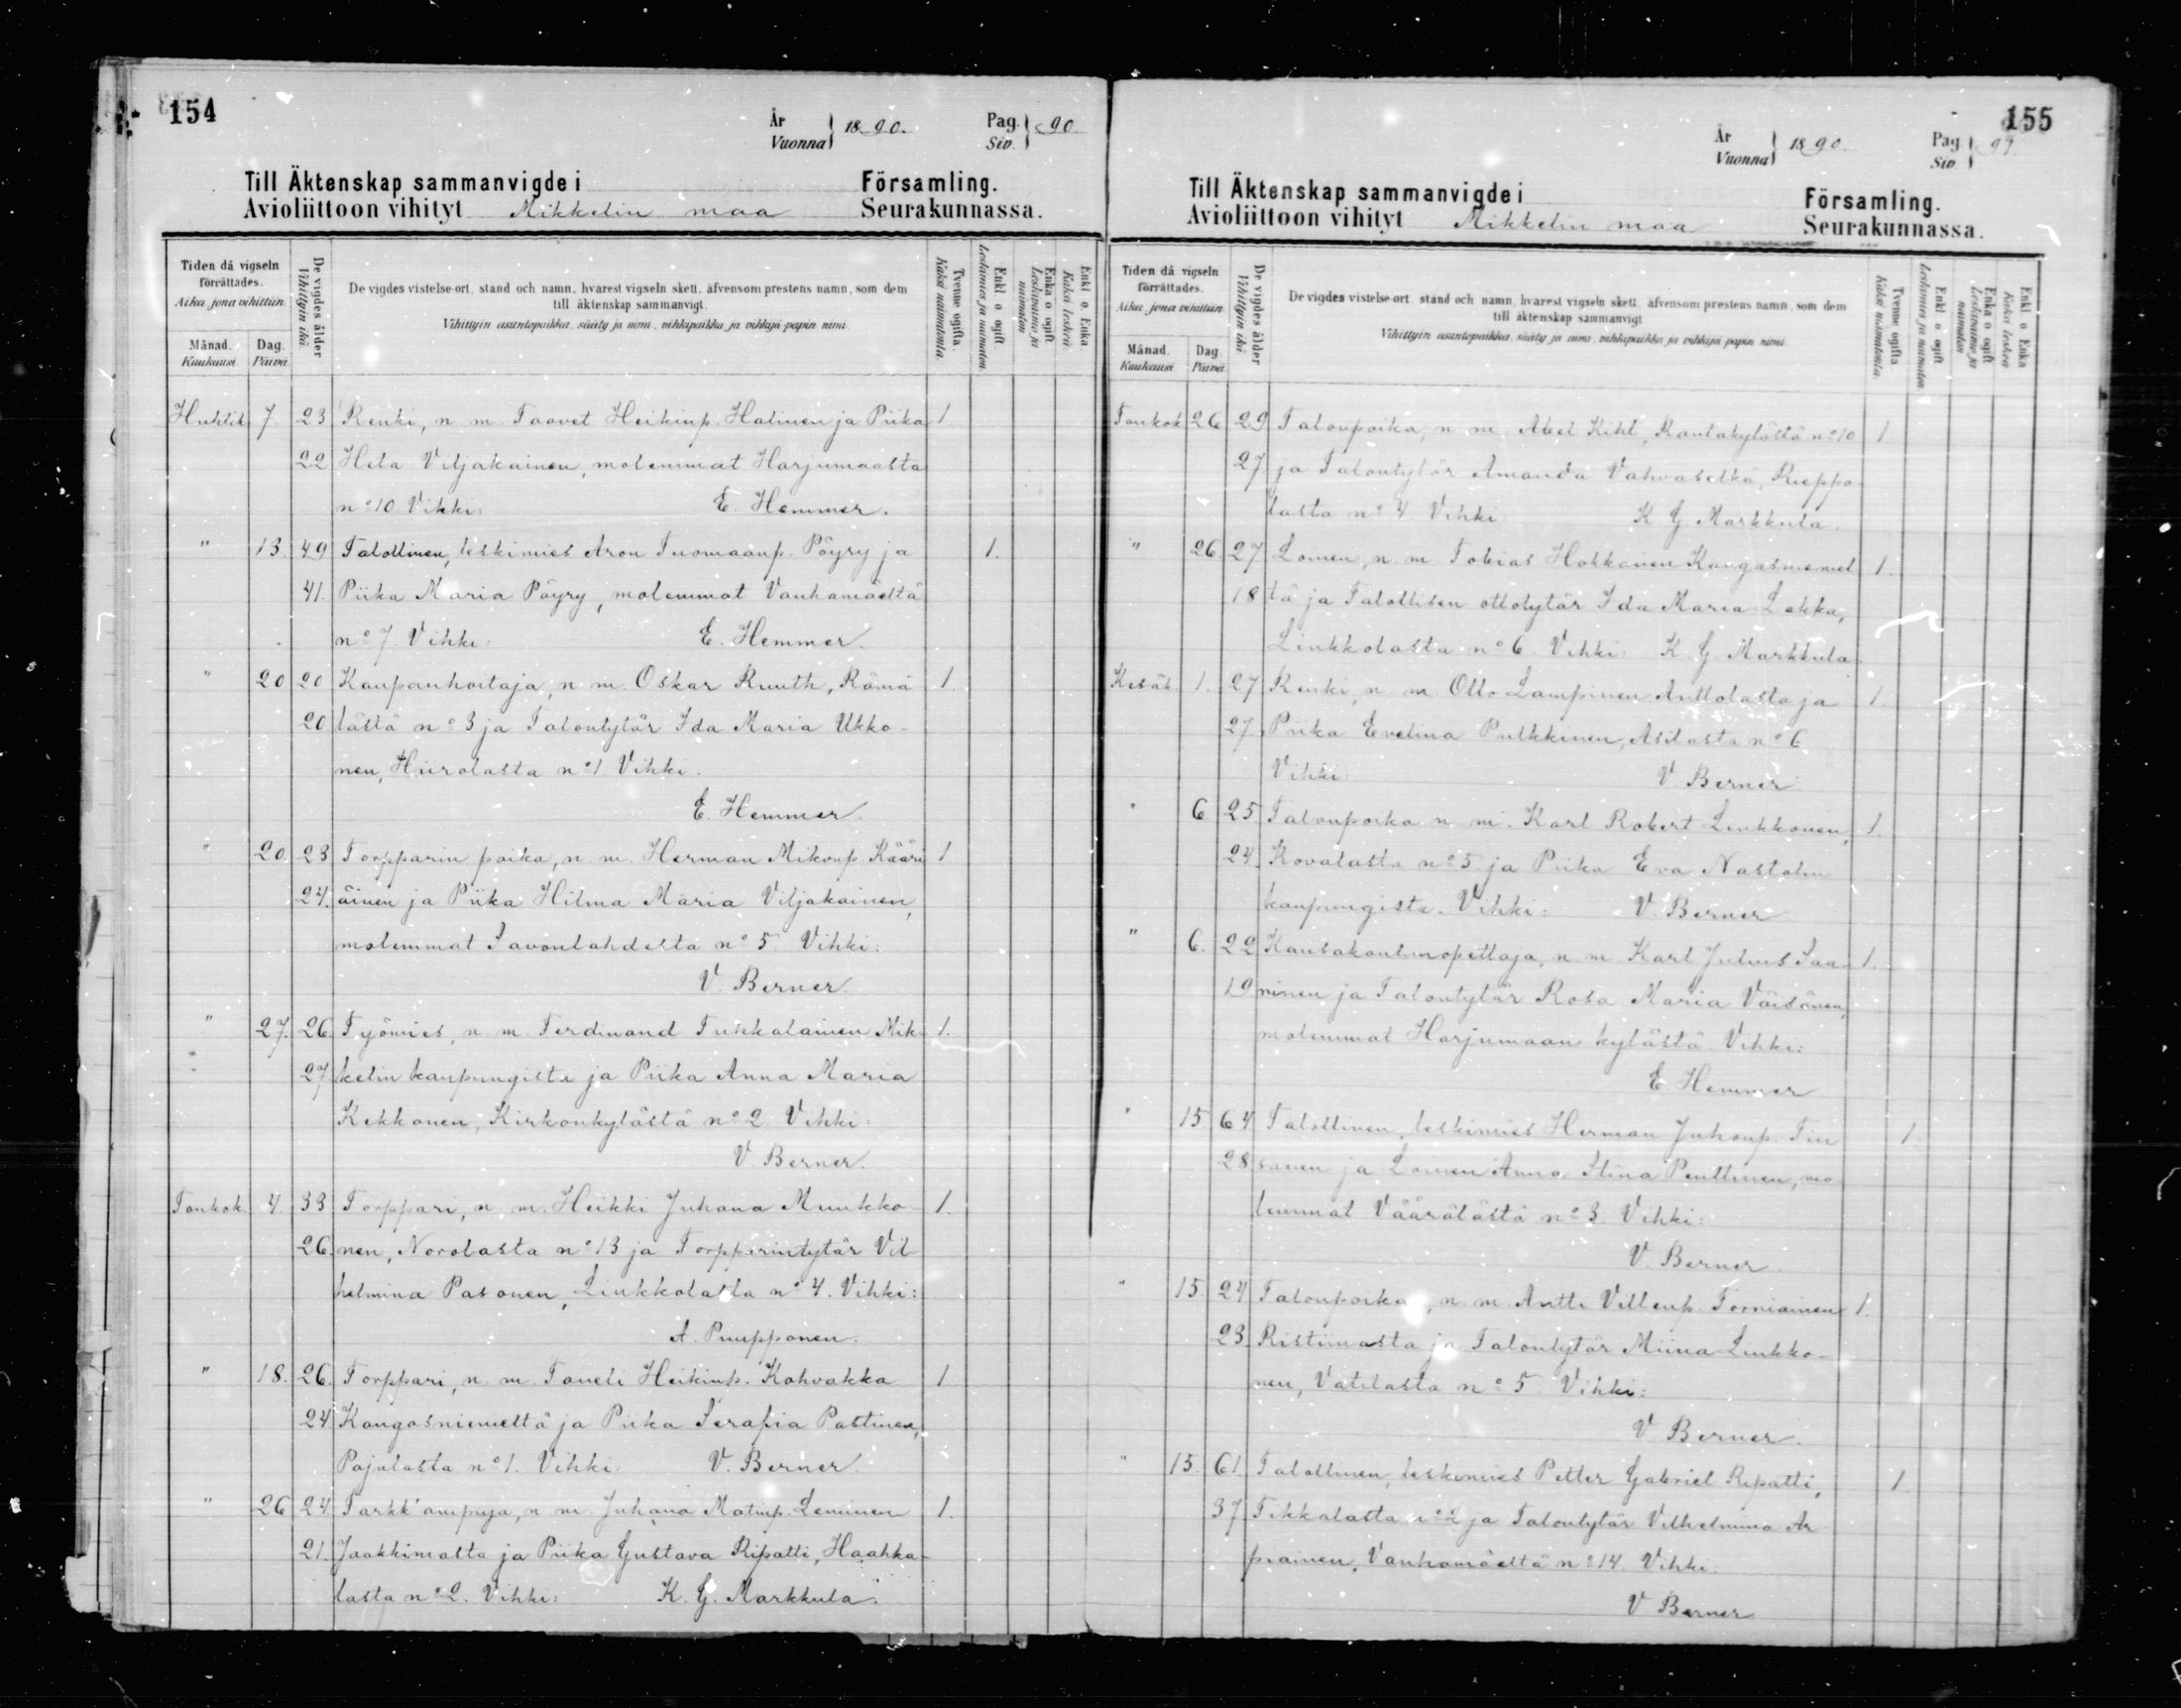 154
År
Vuonna } 1890.
Pag.
Siv. } 90
Till Äktenskap sammanvigde i Församling.
Avioliittoon vihityt Mikkelin maa Seurakunnassa.
Tiden då vigseln förrättades.
Aika, jona vihittiin
Månad. Kuukausi.
Dag. Päivä
De vigdes ålder
Vihittyin ikä.
De vigdes vistelse-ort, stånd och namn, hvarest vigseln skett, äfvensom prestens namn, som dem
till äktenskap sammanvigt.
Vihittyin asuntopaikka, sääty ja nimi, vihkipaikka ja vihkijä-papin nimi.
Tvenne ogifta. Kaksi naimatonta.
Enkl. o. ogift. Leskimies ja naimaton.
Enka o. ogift Leskivaimo ja naimaton
Enkl. o. Enka Kaksi leskeä.
Huhtik. 7. 23 Renki, n. m. Taavet Heikinp. Halinen ja Piika 1.
22 Heta Viljakainen, molemmat Harjumaasta
n:o 10 Vihki: E. Hemmer.
" 13. 49 Talollinen, leskimies Aron Tuomaanp. Pöyry ja 1.
41. Piika Maria Pöyry, molemmat Vanhamäeltä
n:o 7. Vihki: E. Hemmer.
" 20 20 Kaupanhoitaja, n. m. Oskar Ruuth, Rämä 1.
20 lästä n:o 3 ja Talontytär Ida Maria Ukko-
nen, Hiirolasta n:o 1. Vihki:
E. Hemmer.
" 20. 23 Torpparin poika, n. m. Herman Mikonp. Kääri 1
24. äinen ja Piika Hilma Maria Viljakainen,
molemmat Savonlahdesta n:o 5. Vihki:
V. Berner.
" 27. 26. Työmies, n. m. Ferdinand Tuhkalainen Mik- 1.
27 kelin kaupungista ja Piika Anna Maria
Kekkonen, Kirkonkylästä n:o 2. Vihki:
V. Berner.
Toukok. 4. 33 Torppari, n. m. Heikki Juhana Muukko- 1.
26. nen, Norolasta n:o 13 ja Torpparintytär Vil
helmina Pasonen, Liukkolasta n:o 4. Vihki:
A. Puupponen.
" 18. 26. Torppari, n. m. Taneli Heikinp. Kahvakka 1
24 Kangasniemeltä ja Piika Serafia Pastinen,
Pajulasta n:o 1. Vihki: V. Berner.
" 26 24. Tarkk'ampuja, n. m. Juhana Matinp. Leminen 1.
21. Jaakkimasta ja Piika Gustava Ripatti, Haahka-
lasta n:o 2. Vihki: K. G. Markkula.
155
År
Vuonna } 1890.
Pag.
Siv. }
Till Äktenskap sammanvigde i Församling.
Avioliittoon vihityt Mikkelin maa Seurakunnassa.
Tiden då vigseln förrättades.
Aika, jona vihittiin
Månad. Kuukausi.
Dag. Päivä
De vigdes ålder
Vihittyin ikä.
De vigdes vistelse-ort, stånd och namn, hvarest vigseln skett, äfvensom prestens namn, som dem
till äktenskap sammanvigt
Vihittyin asuntopaikka, sääty ja nimi, vihkipaikka ja vihkijä-papin nimi.
Tvenne ogifta Kaksi naimatonta.
Enkl. o. ogift Leskimies ja naimaton
Enka o. ogift Leskivaimo ja naimaton
Enkl. o. Enka Kaksi leskeä
Toukok 26 29 Talonpoika, n. m. Abel Kihl, Rantakylästä n:o 10 1.
27 ja Talontytär Amanda Vahvaselkä, Rieppo-
lasta n:o 4 Vihki K. G. Markkula.
" 26. 27 Loinen, n. m. Tobias Hokkanen Kangasniemel 1.
18 tä ja Talollisen ottotytär Ida Maria Lekka,
Liukkolasta n:o 6. Vihki: K. G. Markkula.
Kesäk 1. 27 Renki, n. m. Otto Lampinen Anttolasta ja 1.
27. Piika Evelina Pulkkinen, Asilasta n:o 6
Vihki: V. Berner.
" 6 25. Talonpoika n. m. Karl Robert Liukkonen, 1.
24. Kovalasta n:o 5 ja Piika Eva Nastolin
kaupungista. Vihki: V. Berner.
" 6. 22 Kansakoulunopettaja, n. m. Karl Julius Saa- 1.
19 rinen ja Talontytär Rosa Maria Väisänen,
molemmat Harjumaan kylästä. Vihki:
E. Hemmer
" 15 64 Talollinen, leskimies Herman Juhonp. Tiu 1
28 sanen ja Loinen Anna Stina Penttinen, mo
lemmat Väärälästä n:o 3. Vihki:
V. Berner.
" 15 24 Talonpoika, n. m. Antti Villenp. Torniainen 1.
23. Ristiinasta ja Talontytär Miina Liukko-
nen, Vatilasta n:o 5 Vihki:
V. Berner.
" 15. 61. Talollinen, leskimies Petter Gabriel Ripatti, 1
37 Tikkalasta n:o 2 ja Talontytär Vilhelmina Ar
piainen, Vanhamäeltä n:o 14. Vihki:
V. Berner